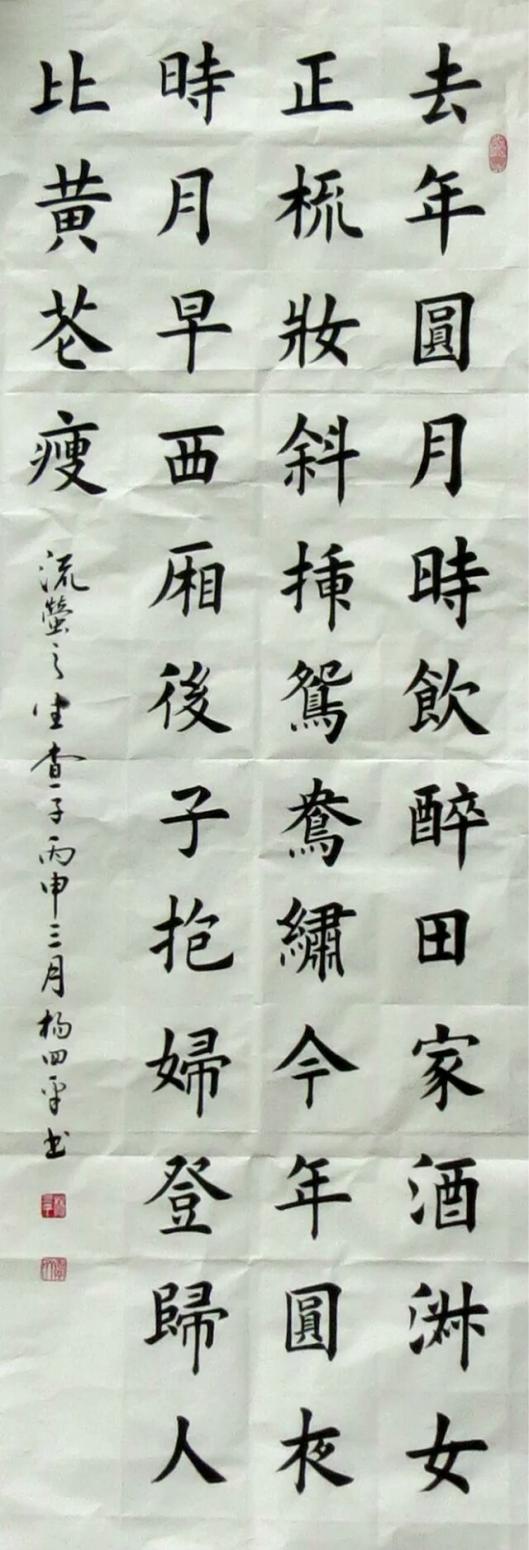 去年圓月時飲醉田家酒淑女
正梳妝斜插鴛鴦繡今年圓夜
時月早西厢後子抱婦登歸人
比黃花瘦
流螢之生查子丙申三月楊四平书